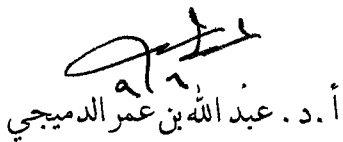 أ. د. عبد الله بن عمر الدميجي